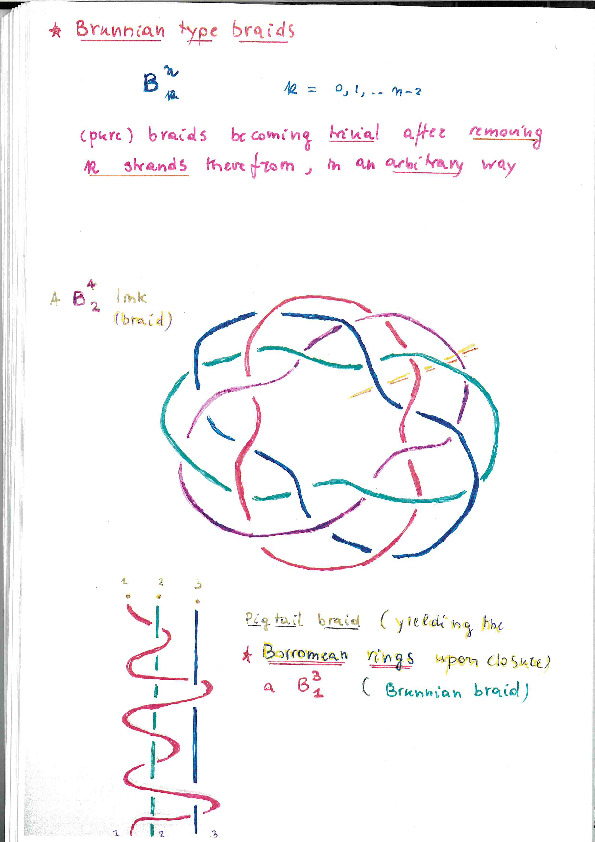 ★ Brunnian type braids
B^n_k k = 0,1,.. n-2
(pure) braids becoming trivial after removing
k strands therefrom, in an arbitrary way
A B^4_2 link
(braid)
1 2 3
Pigtail braid (yielding the
★ Borromean rings upon closure)
a B^3_1 (Brunnian braid)
1 2 3